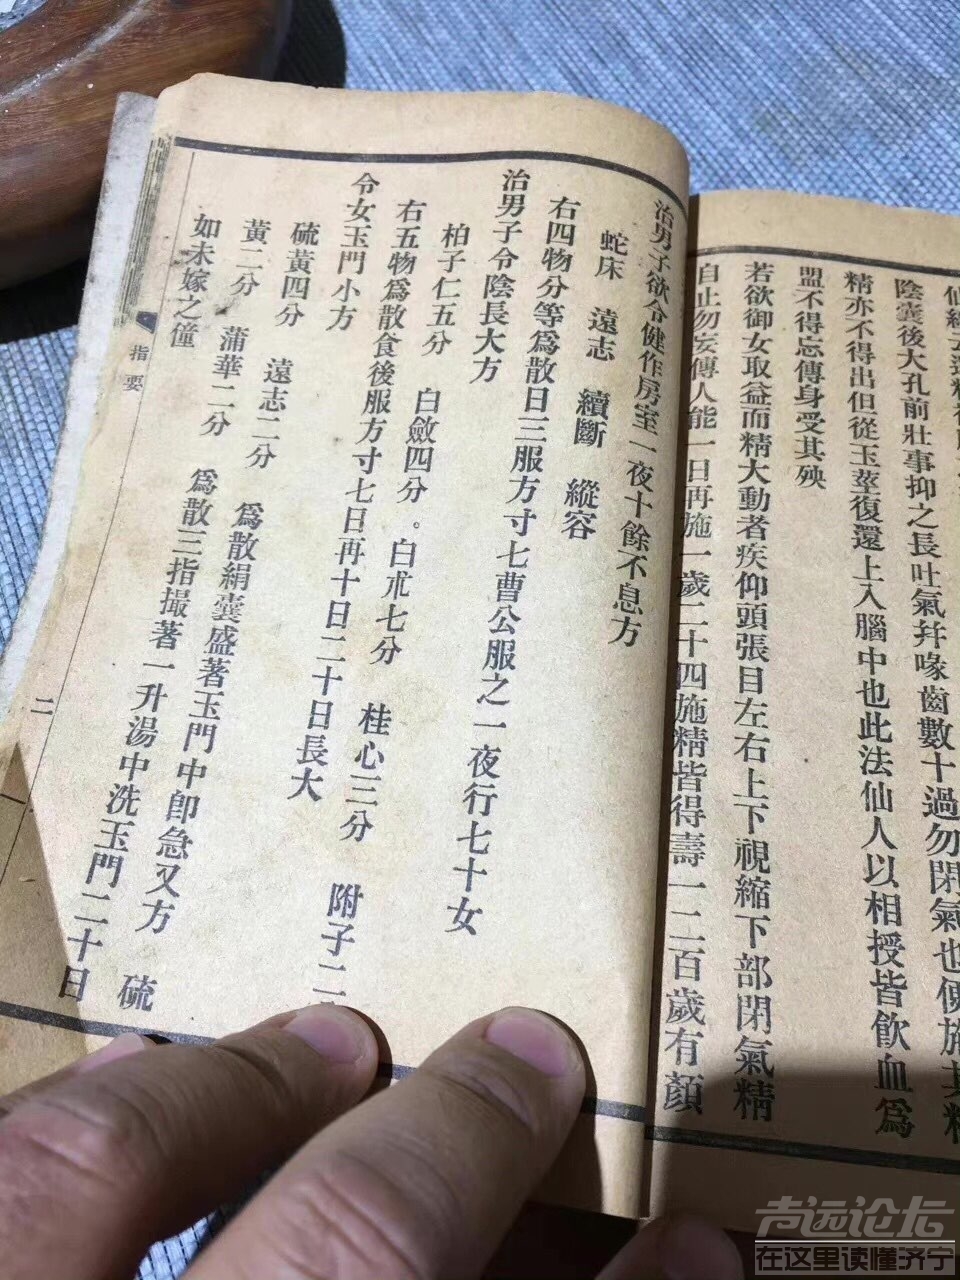 陰囊後大孔前壯事抑之長吐氣幷喙齒數十過勿閉氣也
精亦不得出但從玉莖復還上入腦中也此法仙人以相授皆飲血爲
盟不得忘傳身受其殃
若欲御女取益而精大動者疾仰頭張目左右上下視縮下部閉氣精
自止勿妄傳人能一日再施一歲二十四施精皆得壽一二百歲有顏
治男子欲令健作房室一夜十餘不息方
蛇床 遠志 續斷 縱容
右四物分等爲散日三服方寸七曹公服之一夜行七十女
治男子令陰長大方
柏子仁五分 白斂四分。白朮七分 桂心三分 附子二
右五物爲散食後服方寸七日再十日二十日長大
令女玉門小方
硫黃四分 遠志二分 爲散絹囊盛著玉門中卽急又方 硫
黃二分 蒲華二分 爲散三指撮著一升湯中洗玉門二十日
如未嫁之僮
指要
二
声远论坛
在这里读懂济宁